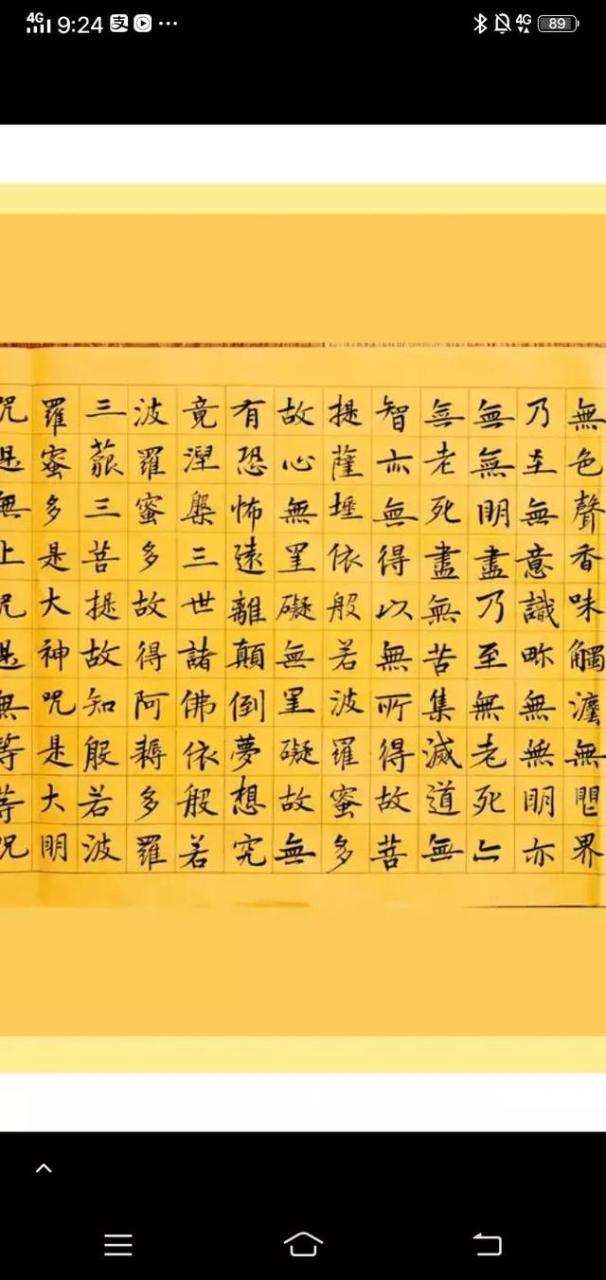 4G 9:24 支 4G 89
無色聲香味觸灋無眼界
乃至無意識畍無無明亦
無無明盡乃至無老死
無老死盡無苦集滅道無
智亦無得以無所得故菩
提薩埵依般若波羅蜜多
故心無罣礙無罣礙故無
有恐怖遠離顛倒夢想究
竟涅槃三世諸佛依般若
波羅蜜多故得阿耨多羅
三藐三菩提故知般若波
羅蜜多是大神咒是大明
咒是無上咒是無等等咒